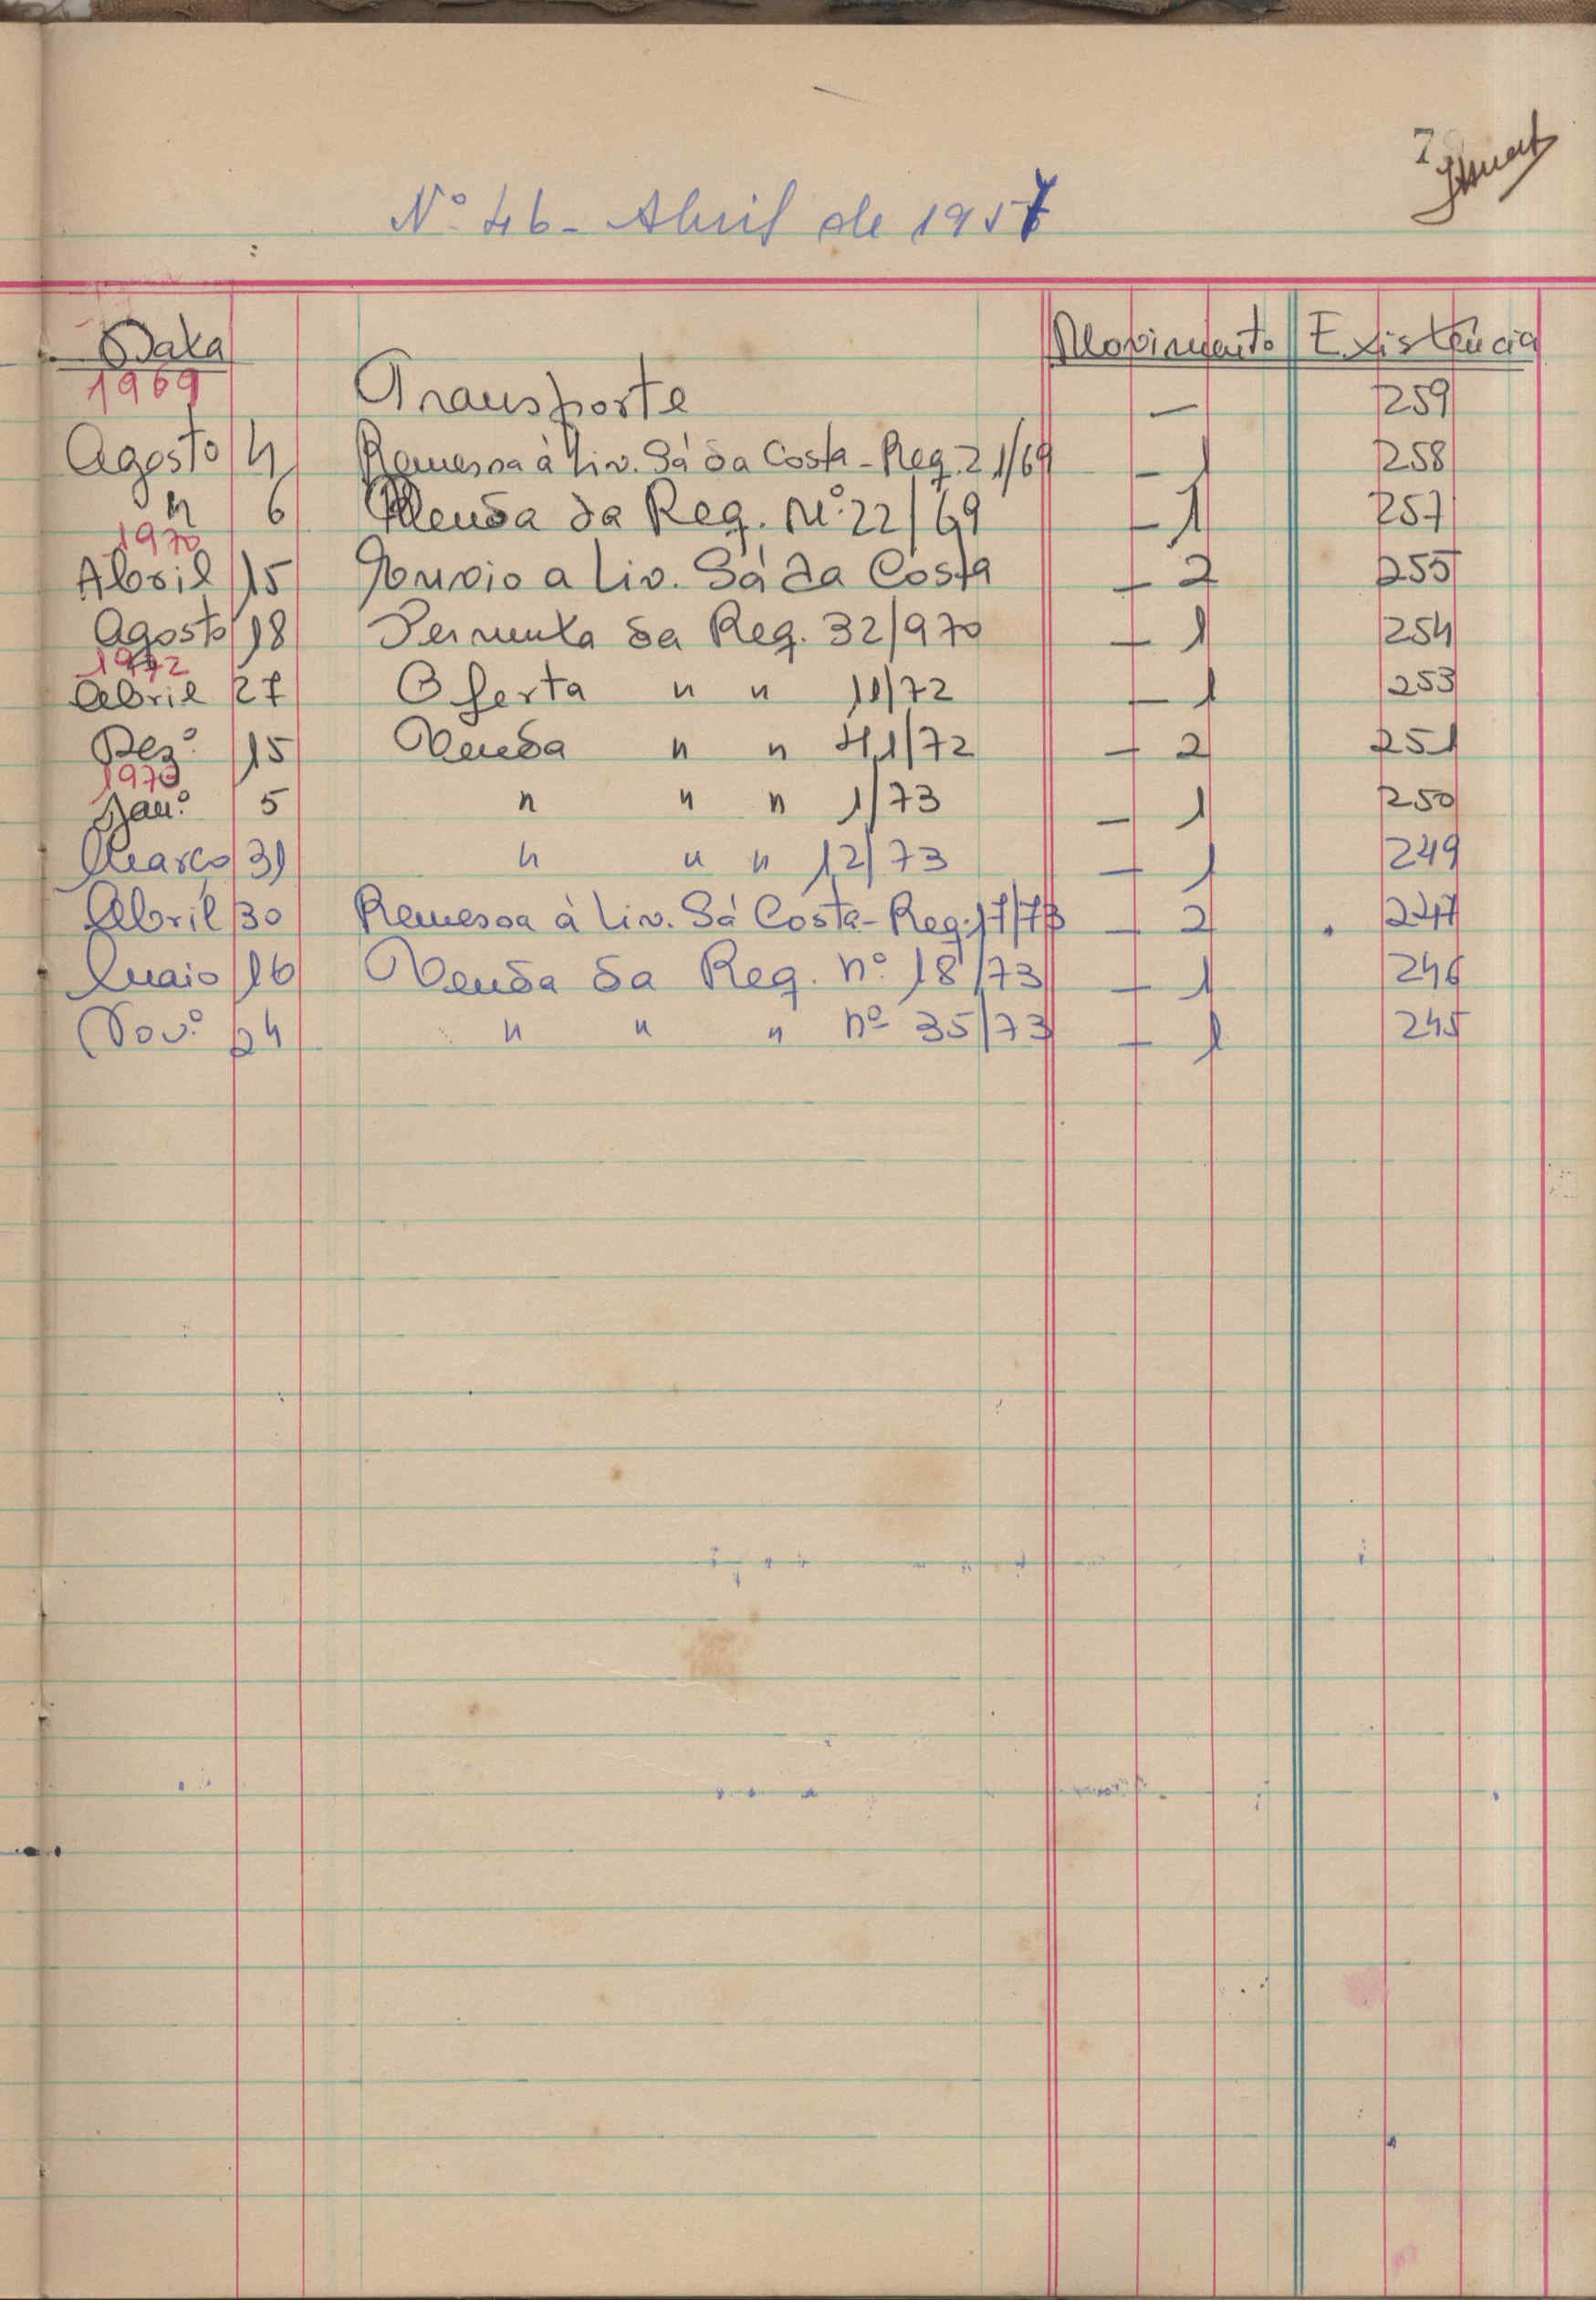 7
Nº 46 - Abril de 1957
Data Movimento Existência
1969 Transporte — 259
Agosto 4 Remessa à Liv. Sá da Costa - Req. 21/69 - 1 258
" 6 Venda da Req. Nº 22/69 - 1 257
1970
Abril 15 Envio a Liv. Sá da Costa - 2 255
Agosto 18 Permuta da Req. 32/970 - 1 254
1972
Abril 27 Oferta " " 11/72 - 1 253
Dezº 15 Venda " " 41/72 - 2 251
1973
Janº 5 " " " 1/73 - 1 250
Março 31 " " " 12/73 - 1 249
Abril 30 Remessa à Liv. Sá Costa - Req. 17/73 - 2 247
Maio 16 Venda da Req. nº 18/73 - 1 246
Novº 24 " " " nº 35/73 - 1 245